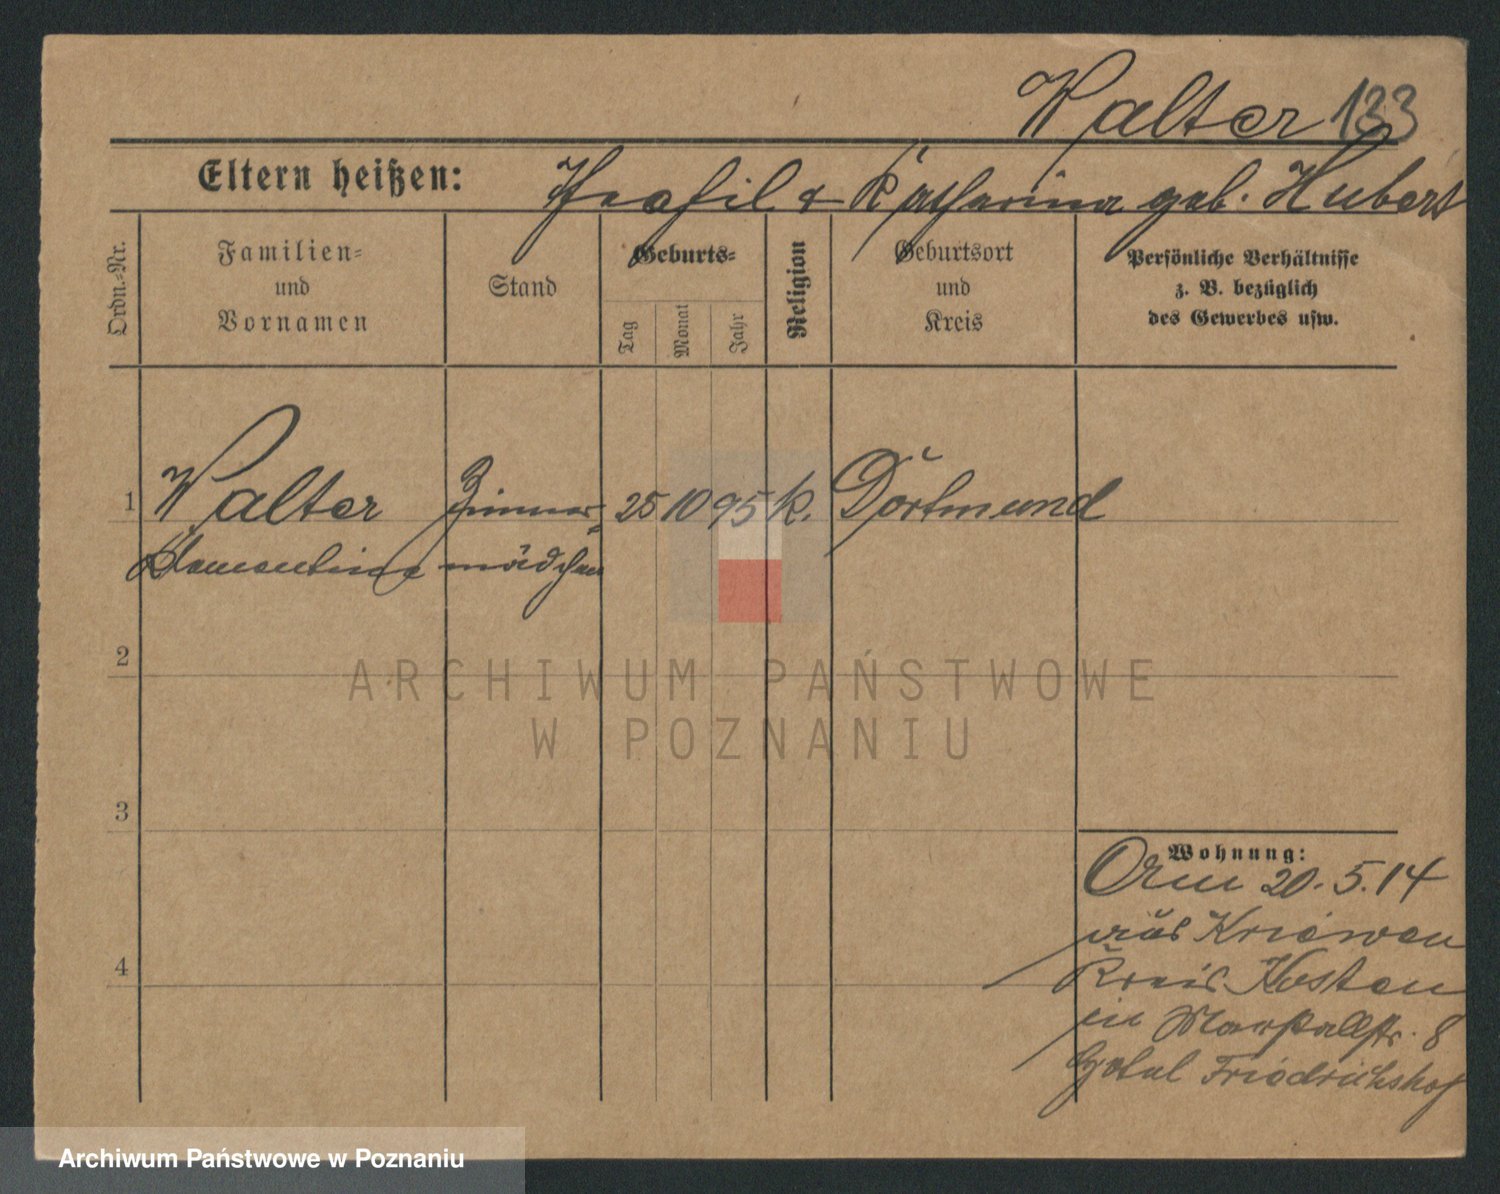 Walter 133
Eltern heißen: Theofil & Katharina geb. Hubert
Ordn.-Nr.
Familien-
und
Vornamen
Stand
Geburts-
Tag
Monat
Jahr
Religion
Geburtsort
und
Kreis
Persönliche Verhältnisse
z. B. bezüglich
des Gewerbes usw.
1 Walter Zimmer- 25 10 95 k. Dortmund
Klementine mädchen
2
3
4
Wohnung:
Orn 20.5.14
aus Kriewen
Kreis Kosten
in Marstallstr. 8
Hotel Friedrichshof
ARCHIWUM PAŃSTWOWE
W POZNANIU
Archiwum Państwowe w Poznaniu